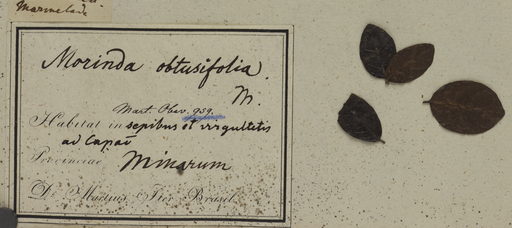 Marmelade
Morinda obtusifolia.
M.
Mart. Obs. 939.
Habitat in sepibus et virgultetis
ad Capaõ
Provinciae Minarum
D. Martius. Iter Brasil.